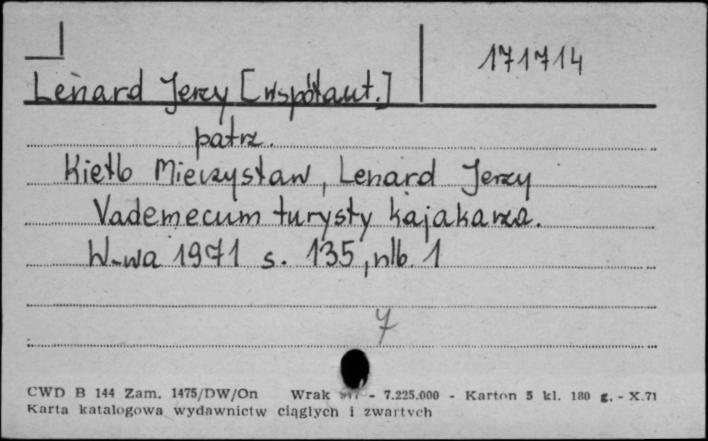 171714
Lenard Jerzy [współaut.]
patrz.
Kiełb Mieczysław, Lenard Jerzy
Vademecum turysty kajakarza.
W-wa 1971 s. 135, nlb. 1
7
CWD B 144 Zam. 1475/DW/On Wrak - 7.225.000 - Karton 5 kl. 180 g. - X.71
Karta katalogowa wydawnictw ciągłych i zwartych